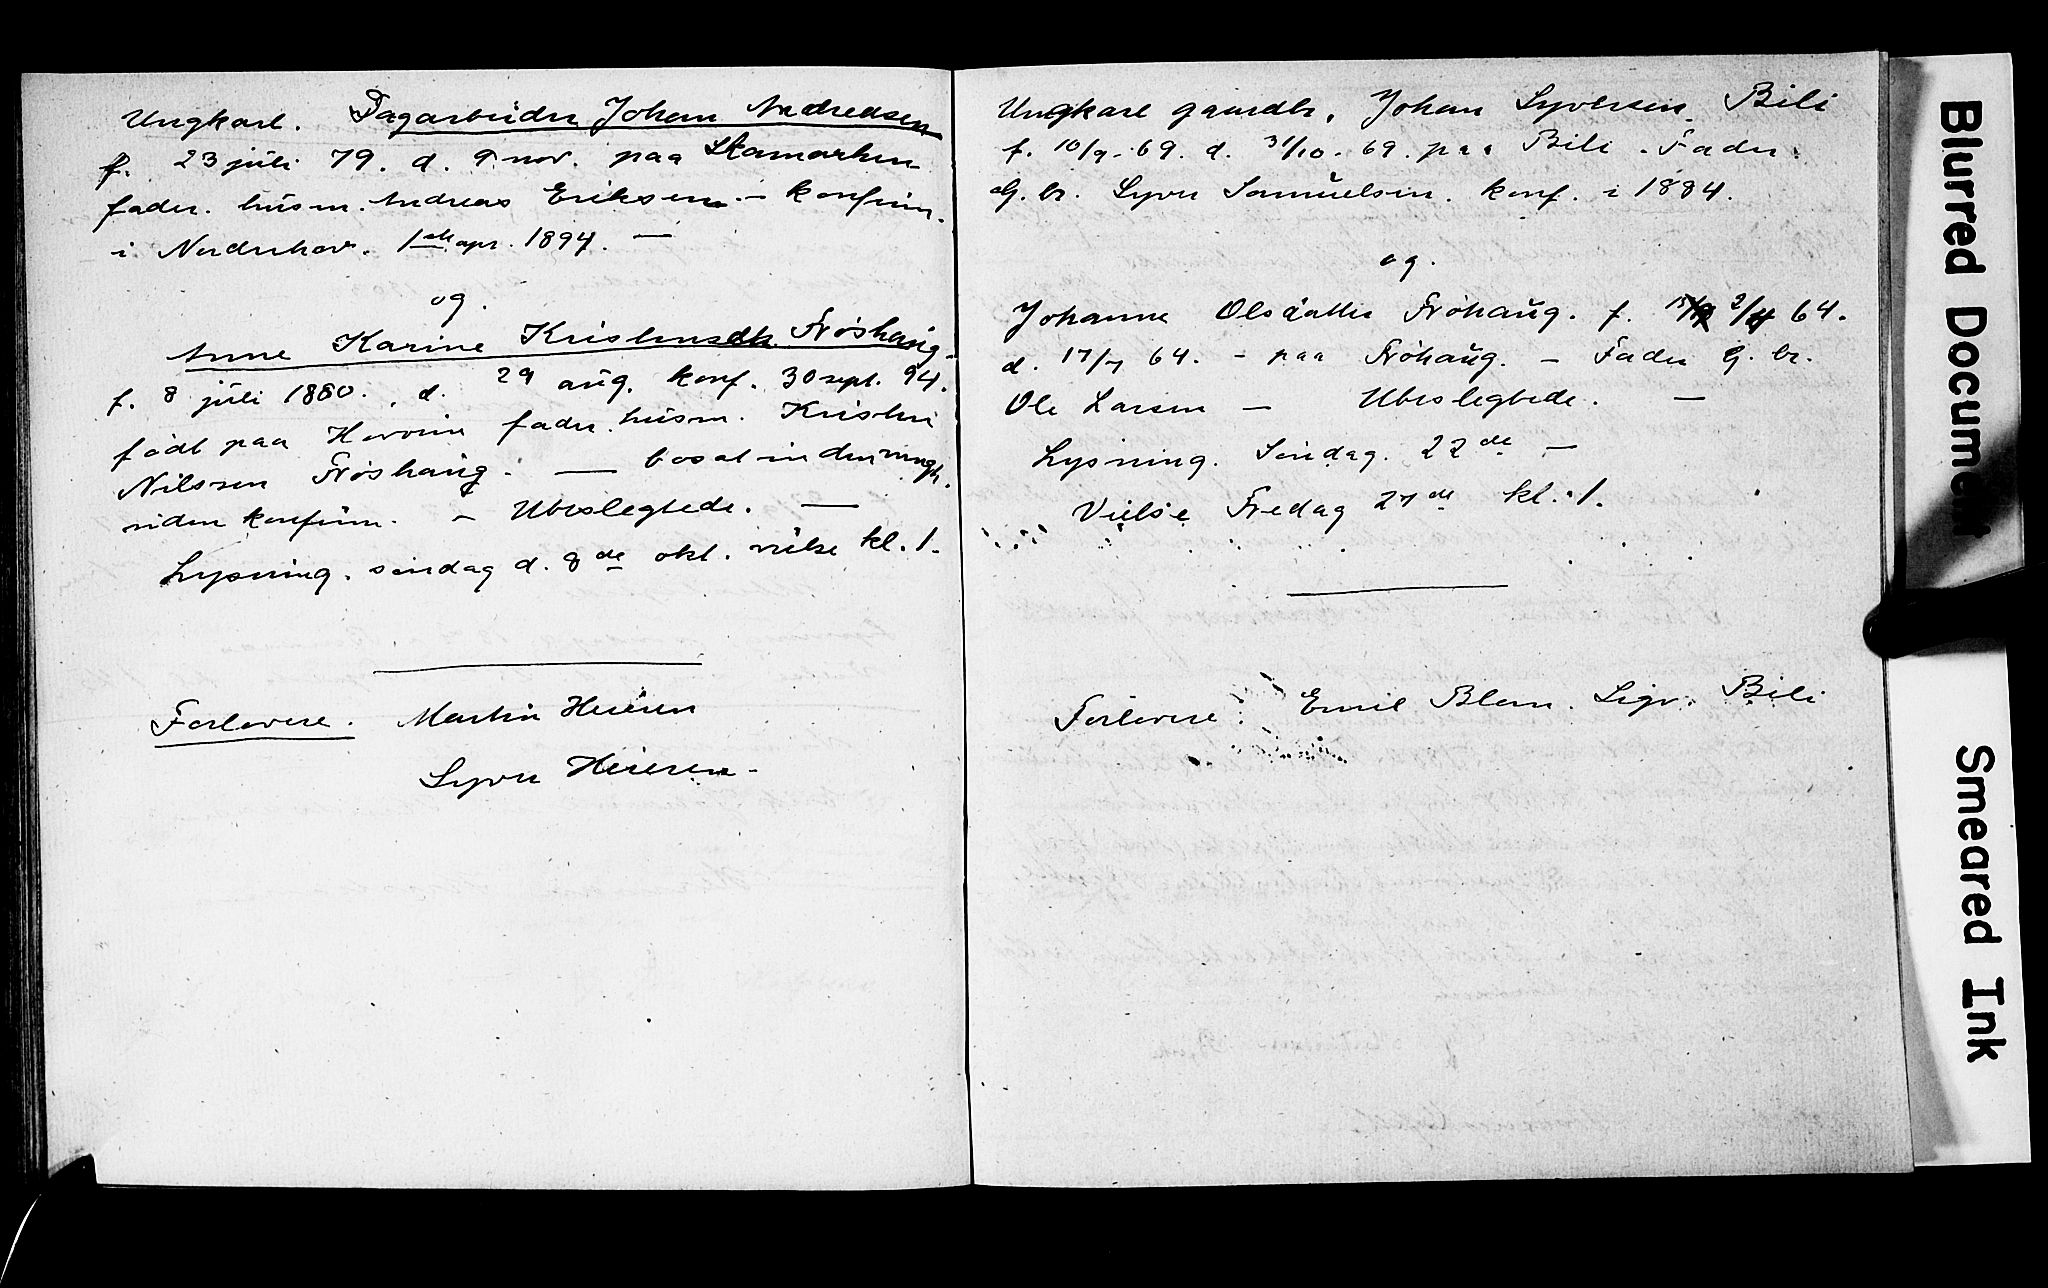 Ungkarl. Dagarbeider Johan Andreasen
f. 23 juli 79. d. 9 nov. paa
fader. husm. Andreas Eriksen. – konfirm.
i Norderhov. 1ste apr. 1894. —
og.
Anne Karine Kristensdtr. Frøshaug.
f. 8 juli 1880. d. 29 aug. konf. 30 sept. 94.
født paa fader. husm. Kristen
Nilsen Frøshaug. — bosat in den menigh.
siden konfirm. – Ubeslegtede. —
Lysning. søndag d. 8de okt. vielse kl. 1.
Forlovere. Martin Heieren
Syver Heieren –
Ungkarl gaardbr. Johan Syversen Bili
f. 10/9 - 69. d. 31/10 - 69. paa Bili. Fader.
G. br. Syver Samuelsen. konf. i 1884.
og.
Johanne Olsdatter Frøhaug. f. 2/4 64.
d. 17/7 64. – paa Frøhaug. – Fader G. br.
Ole Larsen — Ubeslegtede. —
Lysning. Søndag. 22de —
Vielse Fredag 27de kl. 1.
Forlovere: Emil Blom. Sigv. Bili
Blurred Document
Smeared Ink